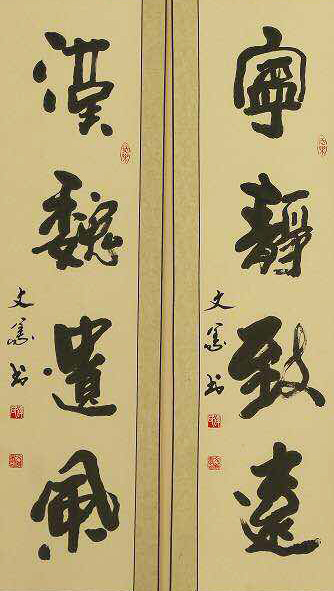 寧靜致遠
文
書
漢魏遺風
文
書